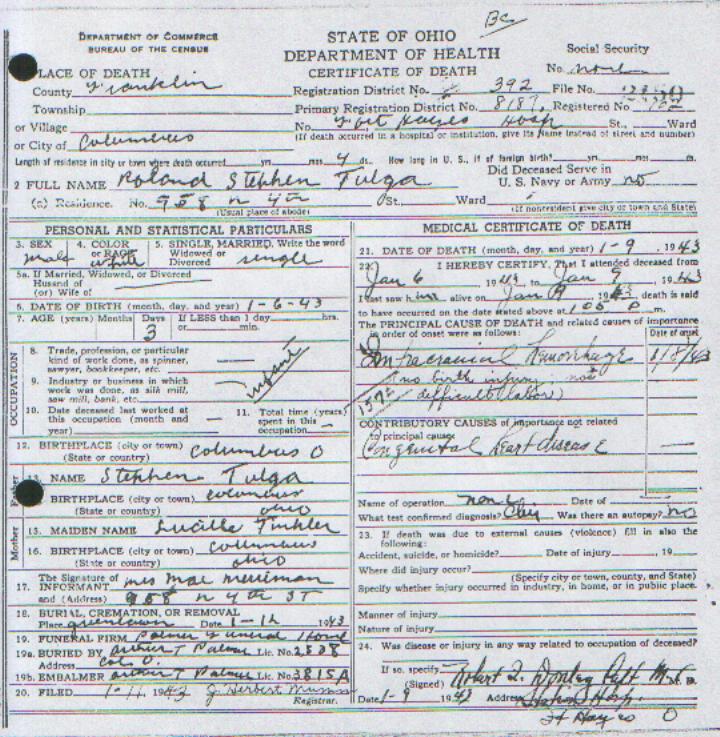 Bc
DEPARTMENT OF COMMERCE
BUREAU OF THE CENSUS
STATE OF OHIO
DEPARTMENT OF HEALTH
CERTIFICATE OF DEATH
Social Security
No. none
PLACE OF DEATH
County Franklin
Registration District No. 392 File No.
Township
Primary Registration District No. 8187 Registered No.
or Village
No. Fort Hayes Hosp St., Ward
or City of Columbus
(If death occurred in a hospital or institution, give its Name instead of street and number)
Length of residence in city or town where death occurred yrs. mos. 4 ds. How long in U. S., if of foreign birth? yrs. mos. ds.
2 FULL NAME Roland Stephen Tulga
Did Deceased Serve in
U. S. Navy or Army no
(a) Residence. No. 958 n 4th St., Ward
(Usual place of abode)
(If nonresident give city or town and State)
PERSONAL AND STATISTICAL PARTICULARS
3. SEX 4. COLOR or RACE 5. SINGLE, MARRIED, Write the word
Widowed or
Divorced
male white single
5a. If Married, Widowed, or Divorced
Husand of
(or) Wife of
6. DATE OF BIRTH (month, day, and year) 1-6-43
7. AGE (years) Months Days If LESS than 1 day hrs.
or min.
3
OCCUPATION
8. Trade, profession, or particular
kind of work done, as spinner,
sawyer, bookkeeper, etc.
9. Industry or business in which
work was done, as silk mill,
saw mill, bank, etc.
infant
10. Date deceased last worked at
this occupation (month and
year)
11. Total time (years)
spent in this
occupation
12. BIRTHPLACE (city or town) Columbus O
(State or country)
Father
13. NAME Stephen Tulga
BIRTHPLACE (city or town) Columbus
(State or country) Ohio
Mother
15. MAIDEN NAME Lucille Tinkler
16. BIRTHPLACE (city or town) Columbus
(State or country) Ohio
17. The Signature of
INFORMANT Mrs Mae Merriman
and (Address) 958 n 4th ST
18. BURIAL, CREMATION, OR REMOVAL
Place greenlawn Date 1-12 1943
19. FUNERAL FIRM Palmer Funeral Home
19a. BURIED BY Arthur T Palmer Lic. No. 2538
Address Col. O.
19b. EMBALMER Arthur T Palmer Lic. No. 3815A
20. FILED 1-11 1943 J. Herbert
Registrar.
MEDICAL CERTIFICATE OF DEATH
21. DATE OF DEATH (month, day, and year) 1-9, 1943
22. I HEREBY CERTIFY, That I attended deceased from
Jan 6 1943, to Jan 9, 1943
I last saw him alive on Jan 9, 1943 death is said
to have occurred on the date stated above at m.
THE PRINCIPAL CAUSE OF DEATH and related causes of importance
in order of onset were as follows:
Date of onset
Intracranial Hemorrhage 1/8/43
(no birth injury, not
difficult labor)
CONTRIBUTORY CAUSES of importance not related
to principal cause:
Congenital Heart disease
Name of operation none Date of
What test confirmed diagnosis? Was there an autopsy? no
23. If death was due to external causes (violence) fill in also the
following:
Accident, suicide, or homicide? Date of injury , 19
Where did injury occur?
(Specify city or town, county, and State)
Specify whether injury occurred in industry, in home, or in public place.
Manner of injury
Nature of injury
24. Was disease or injury in any way related to occupation of deceased?
If so, specify
(Signed) Robert Donley Capt M.
Date 1-9 1943 Address Station Hosp.
Ft Hayes O